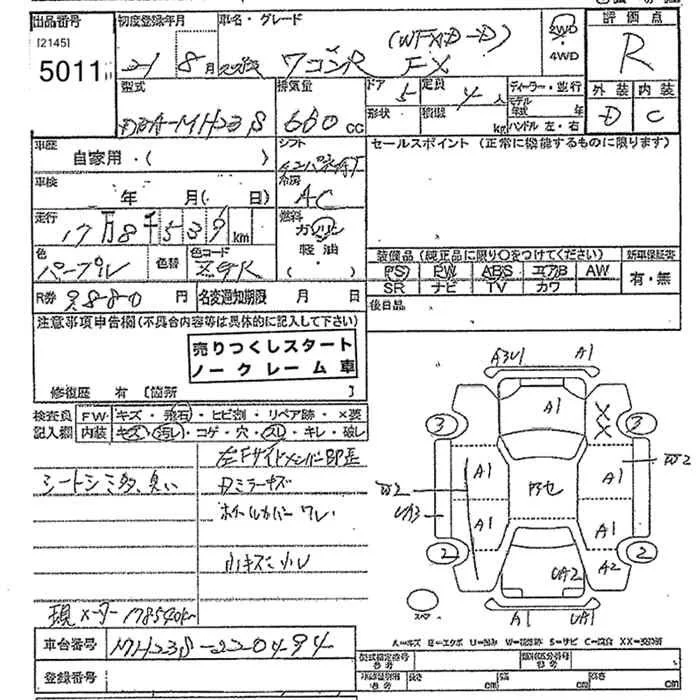 出品番号 初度登録年月 車名・グレード 評価点
[2145]
5011 21 8月 ワゴンR FX 2WD・4WD R
外装 内装
D C
型式 排気量 ドア 定員 ディーラー・並行
DBA-MH23S 660cc 5 4人
形状 積載 kg モデル年式 年
ハンドル 左・右
車歴 シフト セールスポイント (正常に機能するものに限ります)
自家用・( )
車検 冷房
年 月(・ 日) AC
走行 燃料
17万8千539km ガソリン・
軽油・
( )
色 色替 色コード
パープル ZGR
装備品 (純正品に限り○をつけてください) 新車保証書
PS PW ABS エアB AW 有・無
SR ナビ TV カワ
R券 9880円 名変通知期限 月 日
後日品
注意事項申告欄(不具合内容等は具体的に記入して下さい)
売りつくしスタート
ノークレーム車
修復歴 有 [箇所 ]
検査員 FW キズ・飛石・ヒビ割・リペア跡・×要
記入欄 内装 キズ・汚レ・コゲ・穴・スレ・キレ・破レ
左Fサイドメンバー
シートシミ多、臭い
ホイールカバーワレ
小キズ小凹
現メーター178540k
A3U1 A1
A1 X X
3 3
A1 A1 W2
W2
UA3 A1 A1
2 2
UA2 A2
スペア A1 UA1
A=キズ E=エクボ U=凹み W=補修跡 S=サビ C=腐食 XX=交換済
車台番号 MH23S-220494
登録番号
型式指定番号 類別区分番号
長さ cm 幅 cm 高さ cm